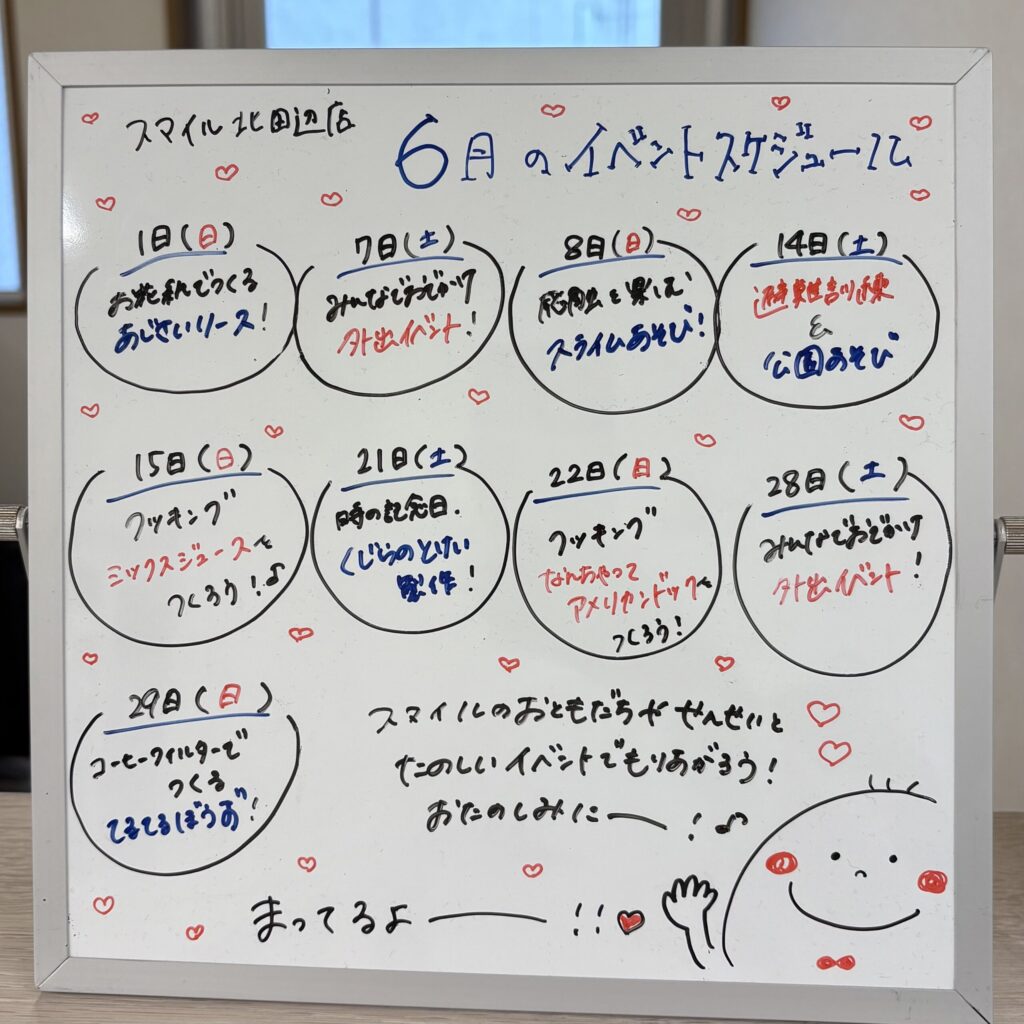 スマイル北田辺店
6月のイベントスケジュール
1日(日)
お花紙でつくる
あじさいリース!
7日(土)
みんなでおでかけ
外出イベント!
8日(日)
感触を楽しむ
スライムあそび!
14日(土)
避難訓練
&
公園あそび
15日(日)
クッキング
ミックスジュースを
つくろう!♪
21日(土)
時の記念日.
くじらのとけい
製作!
22日(日)
クッキング
なんちゃって
アメリカンドックを
つくろう!
28日(土)
みんなでおでかけ
外出イベント!
29日(日)
コーヒーフィルターで
つくる
てるてるぼうず!
スマイルのおともだちやせんせいと
たのしいイベントでもりあがろう!
おたのしみにー!♪
まってるよー!!